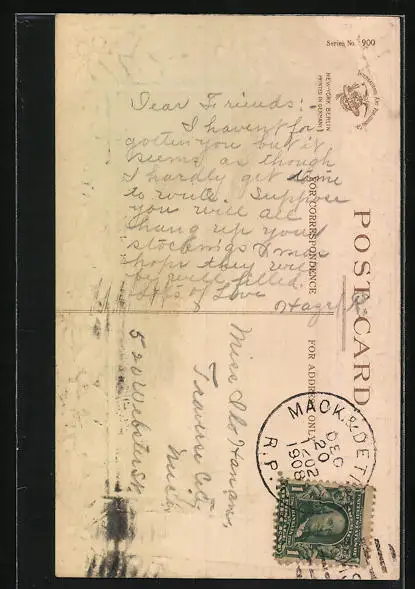 Series No. 900
NEW-YORK BERLIN
PRINTED IN GERMANY
POST CARD
FOR CORRESPONDENCE
FOR ADDRESS ONLY
Dear Friends:
I havent for
gotten you but it
seems as though
I hardly get time
to write. Suppose
you will all
hang up your
stockings Xmas
hope they will
be well filled.
Lots of Love
Hazel
Miss
Traverse City
Mich
520 Webster St
MACK. & DET.
DEC
20
1908
R.P.